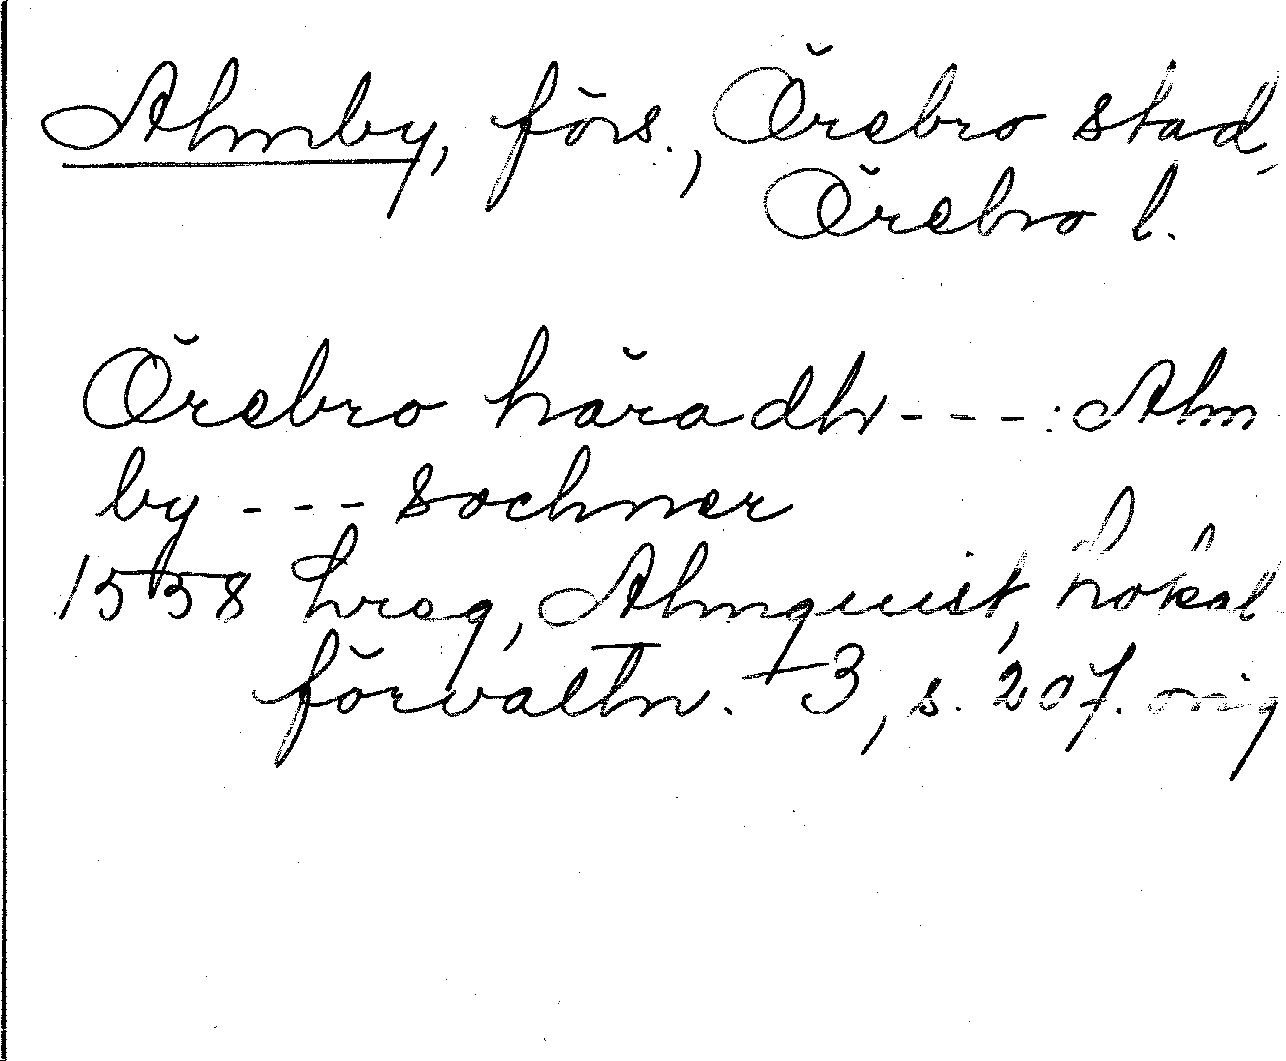 Almby, förs., Örebro stad,
Örebro l.
Örebro häradh - - - : Alm
by - - - sochner
1558 hreg, Almquist, Lokal
förvaltn. 3, s. 207. orig